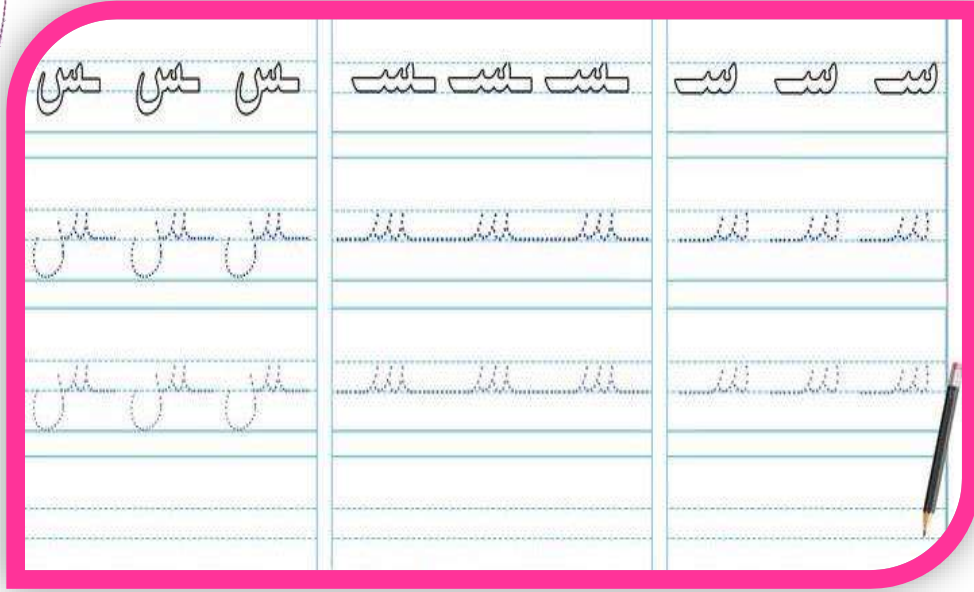 سـ سـ سـ ـسـ ـسـ ـسـ ـس ـس ـس
سـ سـ سـ ـسـ ـسـ ـسـ ـس ـس ـس
سـ سـ سـ ـسـ ـسـ ـسـ ـس ـس ـس